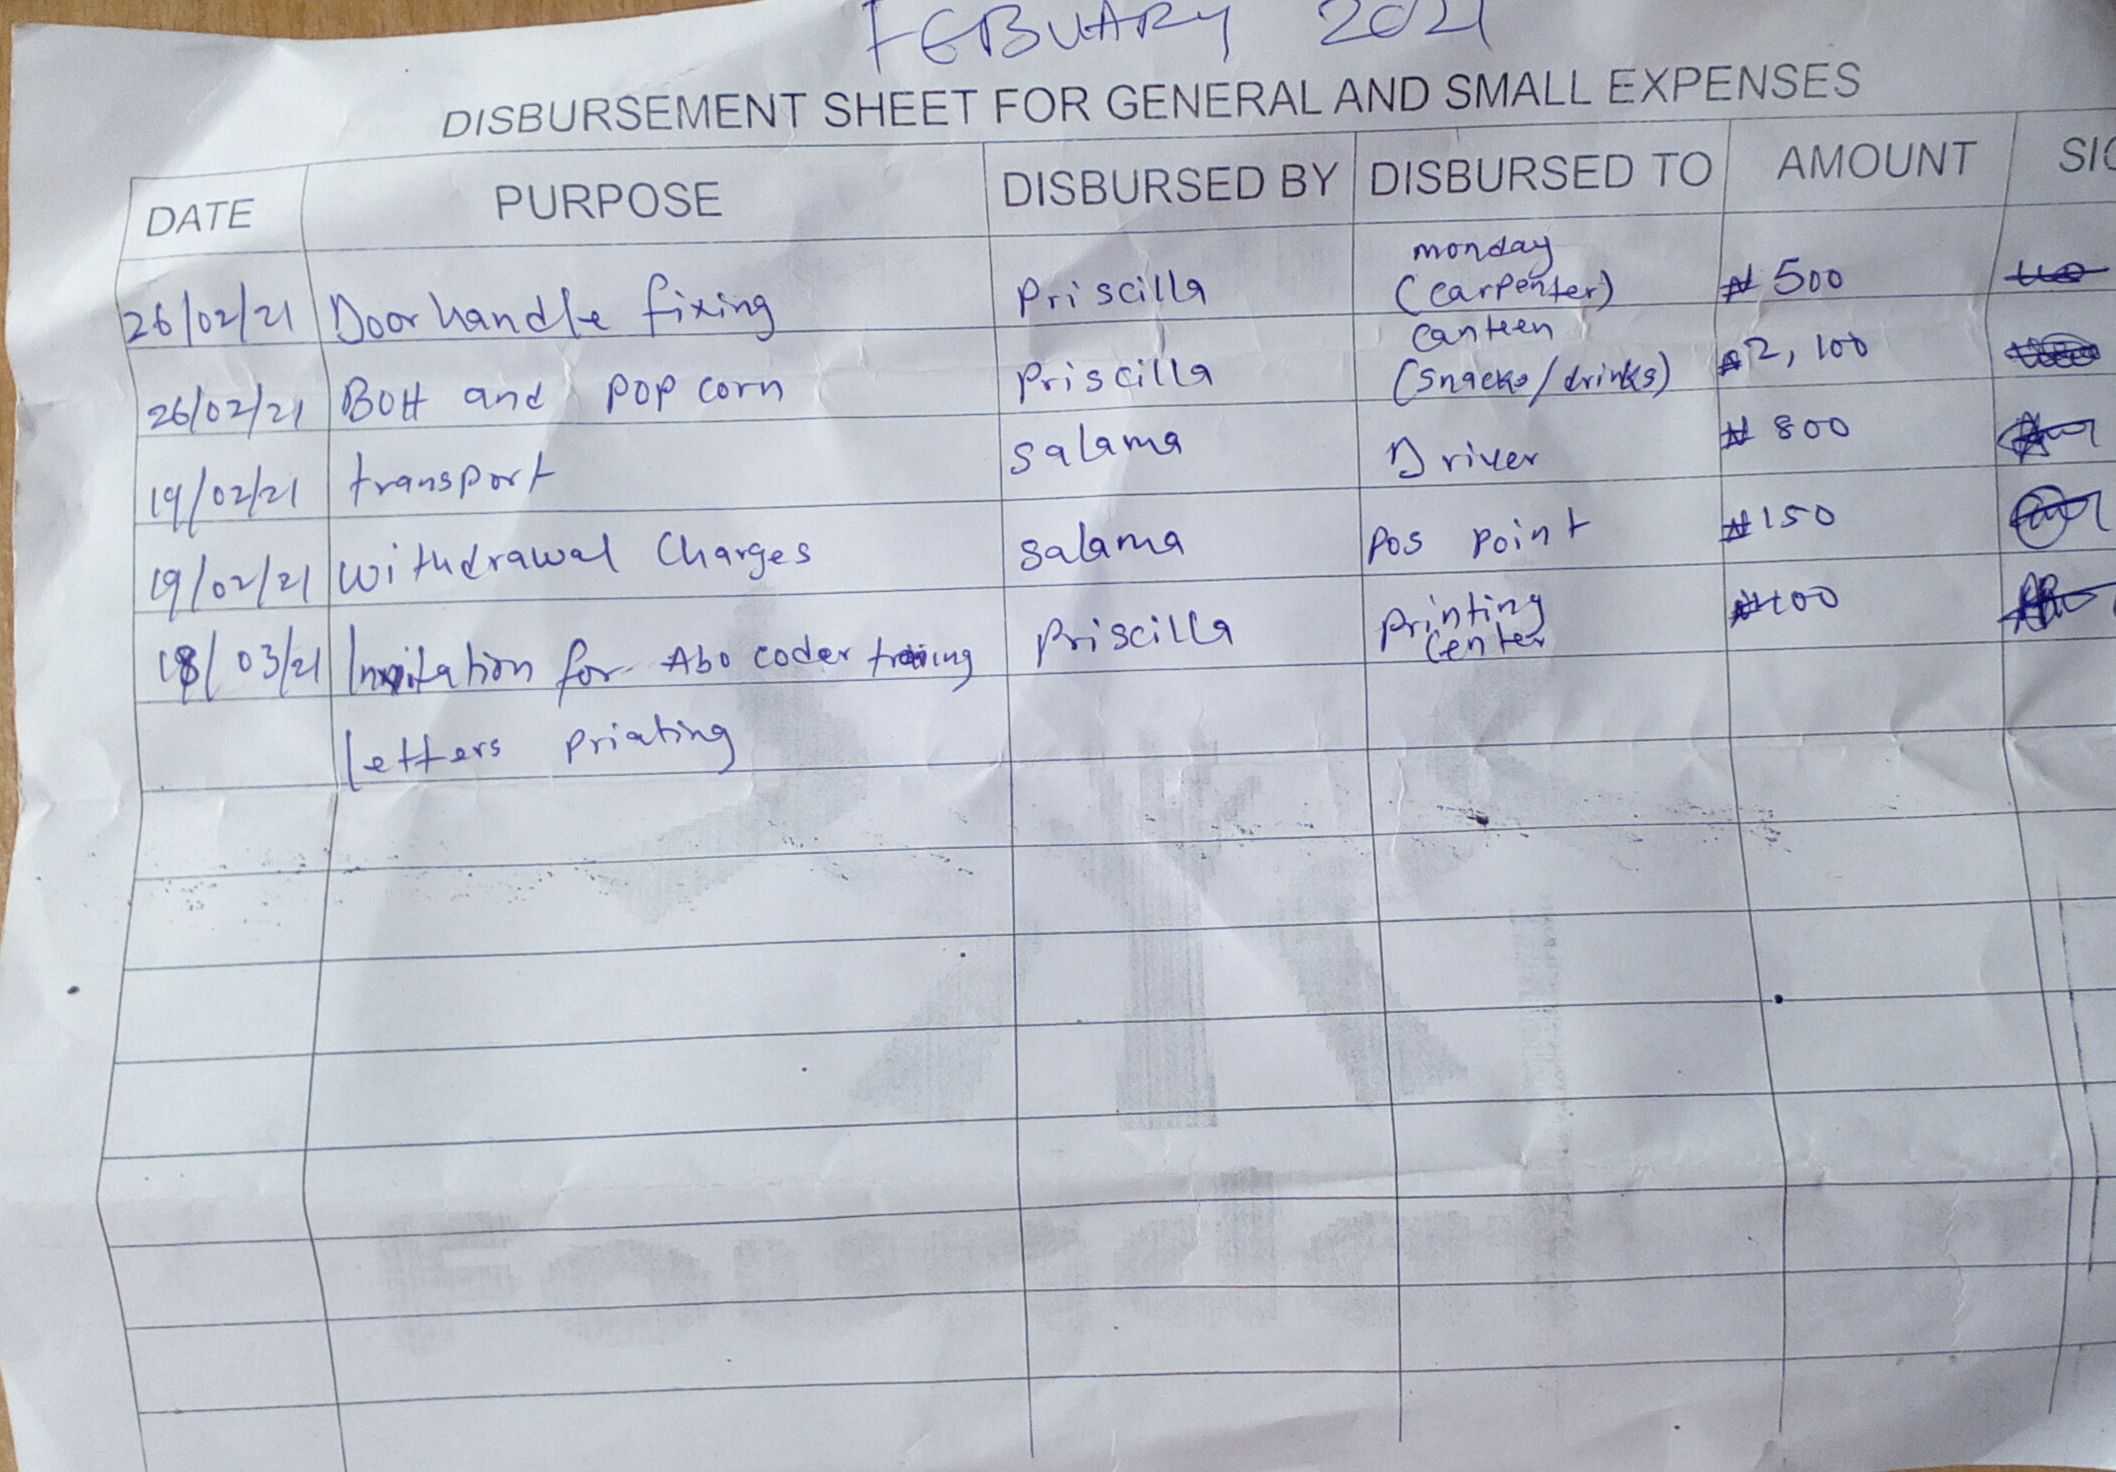 FEBUARY 2021
DISBURSEMENT SHEET FOR GENERAL AND SMALL EXPENSES
DATE PURPOSE DISBURSED BY DISBURSED TO AMOUNT SIG
26/02/21 Door handle fixing Priscilla monday (carpenter) ₦ 500
26/02/21 BOH and pop corn Priscilla canteen (snacks/drinks) ₦2,100
19/02/21 transport Salama Driver ₦ 800
19/02/21 Withdrawal Charges Salama Pos point ₦150
18/03/21 Invitation for Abo coder training Priscilla Printing Center ₦100
letters printing